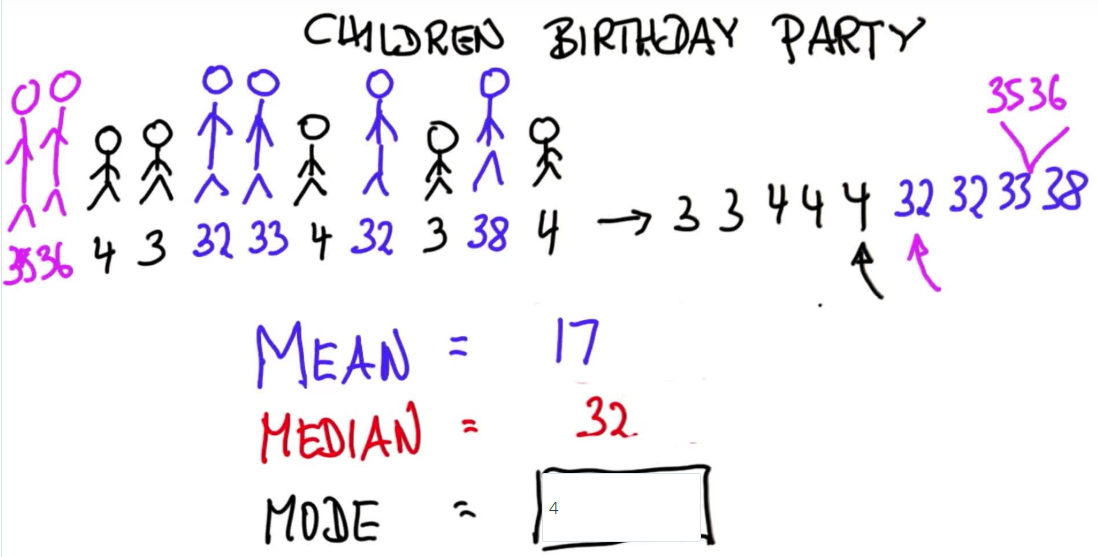 CHILDREN BIRTHDAY PARTY
35 36
35 36 4 3 32 33 4 32 3 38 4 → 3 3 4 4 4 32 32 33 38
MEAN = 17
MEDIAN = 32
MODE = 4